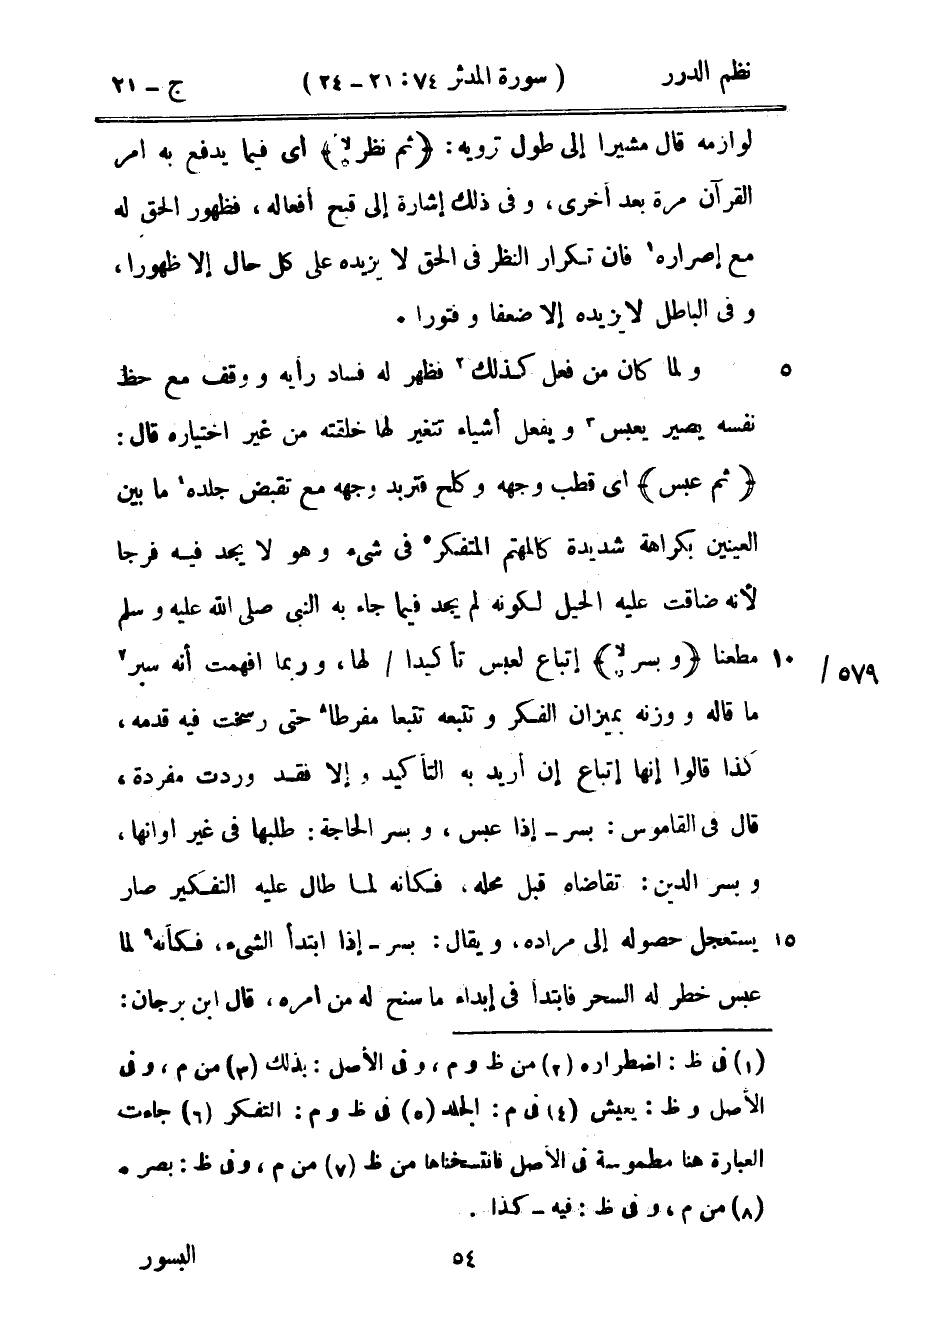 نظم الدرر ( سورة المدثر ٧٤ : ٢١ - ٢٤ ) ج - ٢١
لوازمه قال مشيرا إلى طول ترويه : ﴿ ثم نظر لا ﴾ اى فيما يدفع به امر
القرآن مرة بعد أخرى ، و فى ذلك إشارة إلى قبح أفعاله ، فظهور الحق له
مع إصراره ١ فان تكرار النظر فى الحق لا يزيده على كل حال إلا ظهورا ،
و فى الباطل لا يزيده إلا ضعفا و فتورا .
و لما كان من فعل كذلك ٢ فظهر له فساد رأيه و وقف مع حظ ٥
نفسه يصير يعبس ٣ و يفعل أشياء تتغير لها خلقته من غير اختياره قال :
﴿ ثم عبس ﴾ اى قطب وجهه و كلح فتربد وجهه مع تقبض جلده ٤ ما بين
العينين بكراهة شديدة كالمهتم المتفكر ٥ فى شىء و هو لا يجد فيه فرجا
لأنه ضاقت عليه الحيل لكونه لم يجد فيما جاء به النبى صلى الله عليه و سلم
مطعنا ﴿ و بسر لا ﴾ إتباع لعبس تأكيدا / لها ، و ربما افهمت أنه سبر ٧ ١٠ / ٥٧٩
ما قاله و وزنه بميزان الفكر و تتبعه تتبعا مفرطا ٨ حتى رسخت فيه قدمه ،
كذا قالوا إنها إتباع إن أريد به التأكيد و إلا فقد وردت مفردة ،
قال فى القاموس : بسر - إذا عبس ، و بسر الحاجة : طلبها فى غير اوانها ،
و بسر الدين : تقاضاه قبل محله ، فكانه لما طال عليه التفكير صار
يستعجل حصوله إلى مراده ، و يقال : بسر - إذا ابتدأ الشىء ، فكأنه ٩ لما ١٥
عبس خطر له السحر فابتدأ فى إبداء ما سنح له من امره ، قال ابن برجان :
(١) فى ظ : اضطراره (٢) من ظ و م ، و فى الأصل : بذلك (٣) من م ، و فى
الأصل و ظ : يعيش (٤) فى م : الجلد (٥) فى ظ و م : التفكر (٦) جاءت
العبارة هنا مطموسة فى الأصل فانتسخناها من ظ (٧) من م ، و فى ظ : بصر .
(٨) من م ، و فى ظ : فيه - كذا .
٥٤ البسور